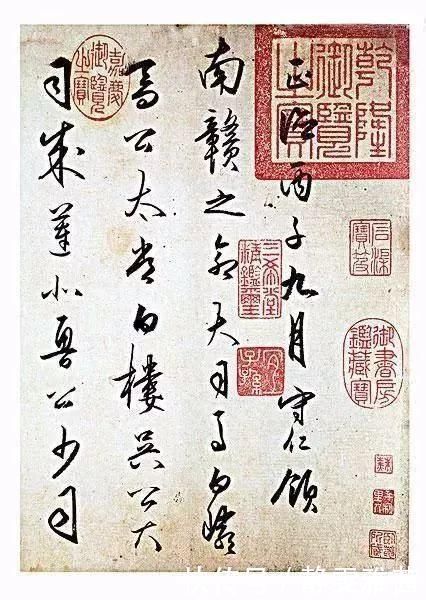 乾隆御覽之寶
正德丙子九月守仁領
南贛之命大司馬白巖
喬公太常白樓吳公大
司成蓮北魯公少司
嘉慶御覽之寶
三希堂精鑑璽
宜子孫
石渠寶笈
御書房鑑藏寶